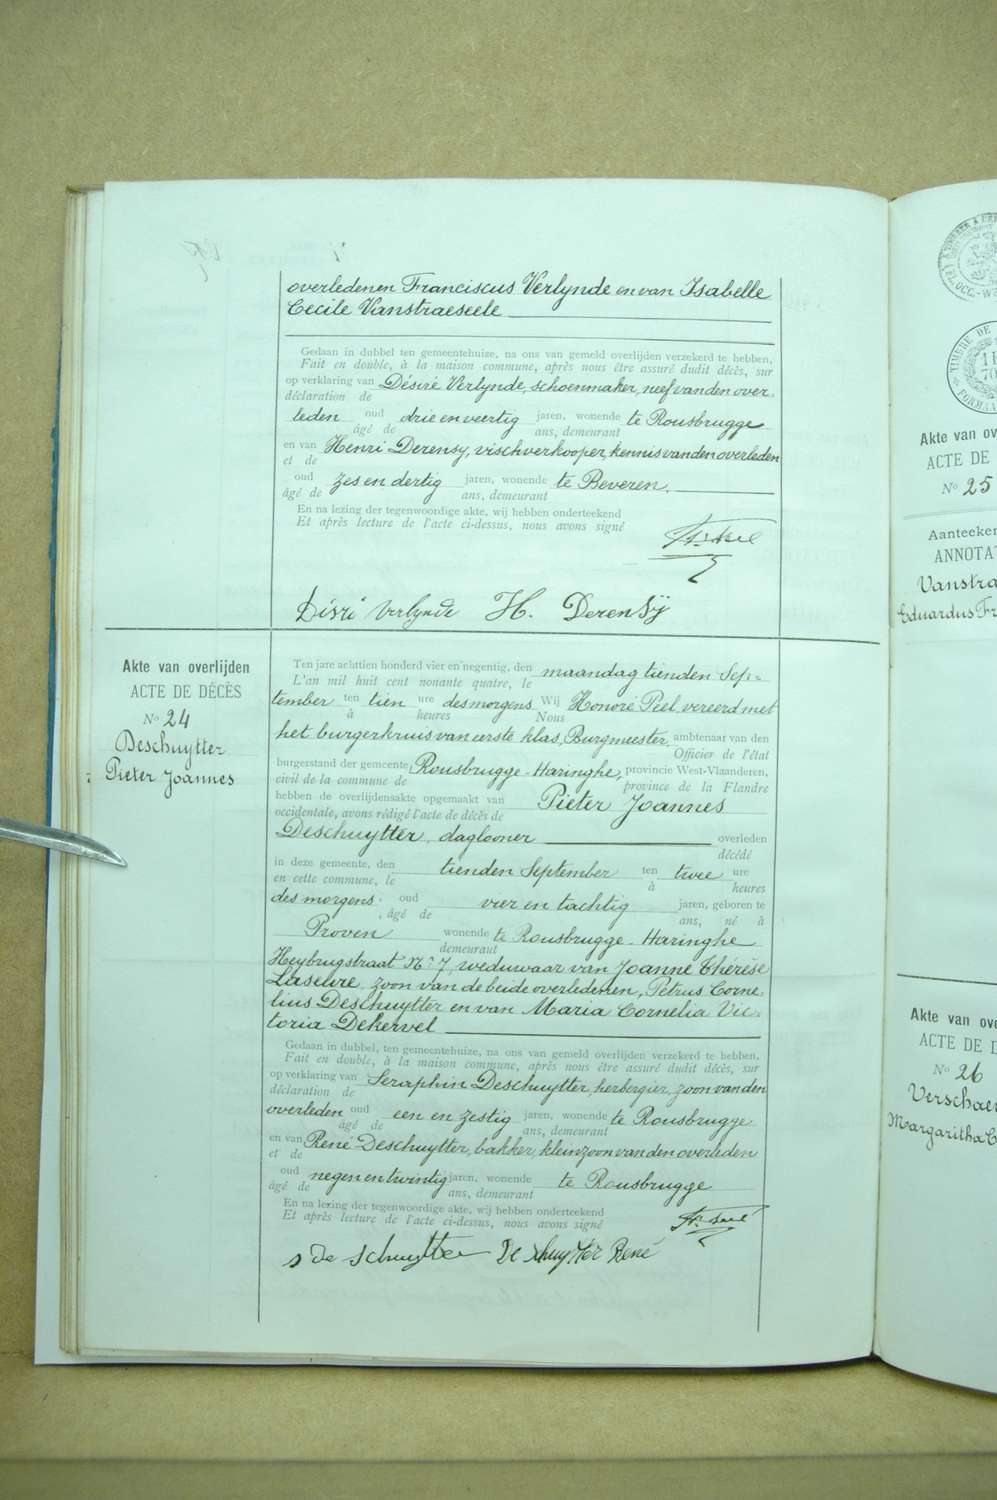 overledenen Franciscus Verlynde en van Isabelle
Cecile Vanstraeseele
Gedaan in dubbel ten gemeentehuize, na ons van gemeld overlijden verzekerd te hebben,
Fait en double, à la maison commune, après nous être assuré dudit décès, sur
op verklaring van Désiré Verlynde, schoenmaker, neef van den over-
déclaration de
leden oud drie en veertig jaren, wonende te Rousbrugge
âgé de ans, demeurant
en van Henri Derensy, vischverkooper, kennis van den overleden
et de
oud zes en dertig jaren, wonende te Beveren.
âgé de ans, demeurant
En na lezing der tegenwoordige akte, wij hebben onderteekend
Et après lecture de l'acte ci-dessus, nous avons signé
Disri Verlynde H. Derensÿ
Akte van overlijden
ACTE DE DÉCÈS
No 24
Deschuytter
Pieter Joannes
Ten jare achttien honderd vier en negentig, den maandag tienden Sep-
L'an mil huit cent nonante quatre, le
tember ten tien ure des morgens Wij Honoré Peel vereerd met
à heures Nous
het burgerkruis van eerste klas, Burgmeester, ambtenaar van den
Officier de l'état
burgerstand der gemeente Rousbrugge-Haringhe, provincie West-Vlaanderen,
civil de la commune de province de la Flandre
hebben de overlijdensakte opgemaakt van Pieter Joannes
occidentale, avons rédigé l'acte de décès de
Deschuytter, daglooner overleden
décédé
in deze gemeente, den tienden September ten twee ure
en cette commune, le à heures
des morgens, oud vier en tachtig jaren, geboren te
âgé de ans, né à
Proven wonende te Rousbrugge-Haringhe
demeurant
Heybrugstraat No 7, weduwaar van Joanne Thérèse
Laseure, zoon van de beide overledenen, Petrus Corne-
lius Deschuytter en van Maria Cornelia Vic-
toria Dekervel
Gedaan in dubbel, ten gemeentehuize, na ons van gemeld overlijden verzekerd te hebben,
Fait en double, à la maison commune, après nous être assuré dudit décès, sur
op verklaring van Seraphin Deschuytter, herbergier, zoon van den
déclaration de
overleden oud een en zestig jaren, wonende te Rousbrugge
âgé de ans, demeurant
en van René Deschuytter, bakker, kleinzoon van den overleden
et de
oud negen en twintig jaren, wonende te Rousbrugge
âgé de ans, demeurant
En na lezing der tegenwoordige akte, wij hebben onderteekend
Et après lecture de l'acte ci-dessus, nous avons signé
s De schuytter De schuytter René
Akte van ov
ACTE DE
No 25
Aanteeken
ANNOTA
Vanstra
Eduardus Fr
Akte van ov
ACTE DE D
No 26
Verschae
Margaritha C